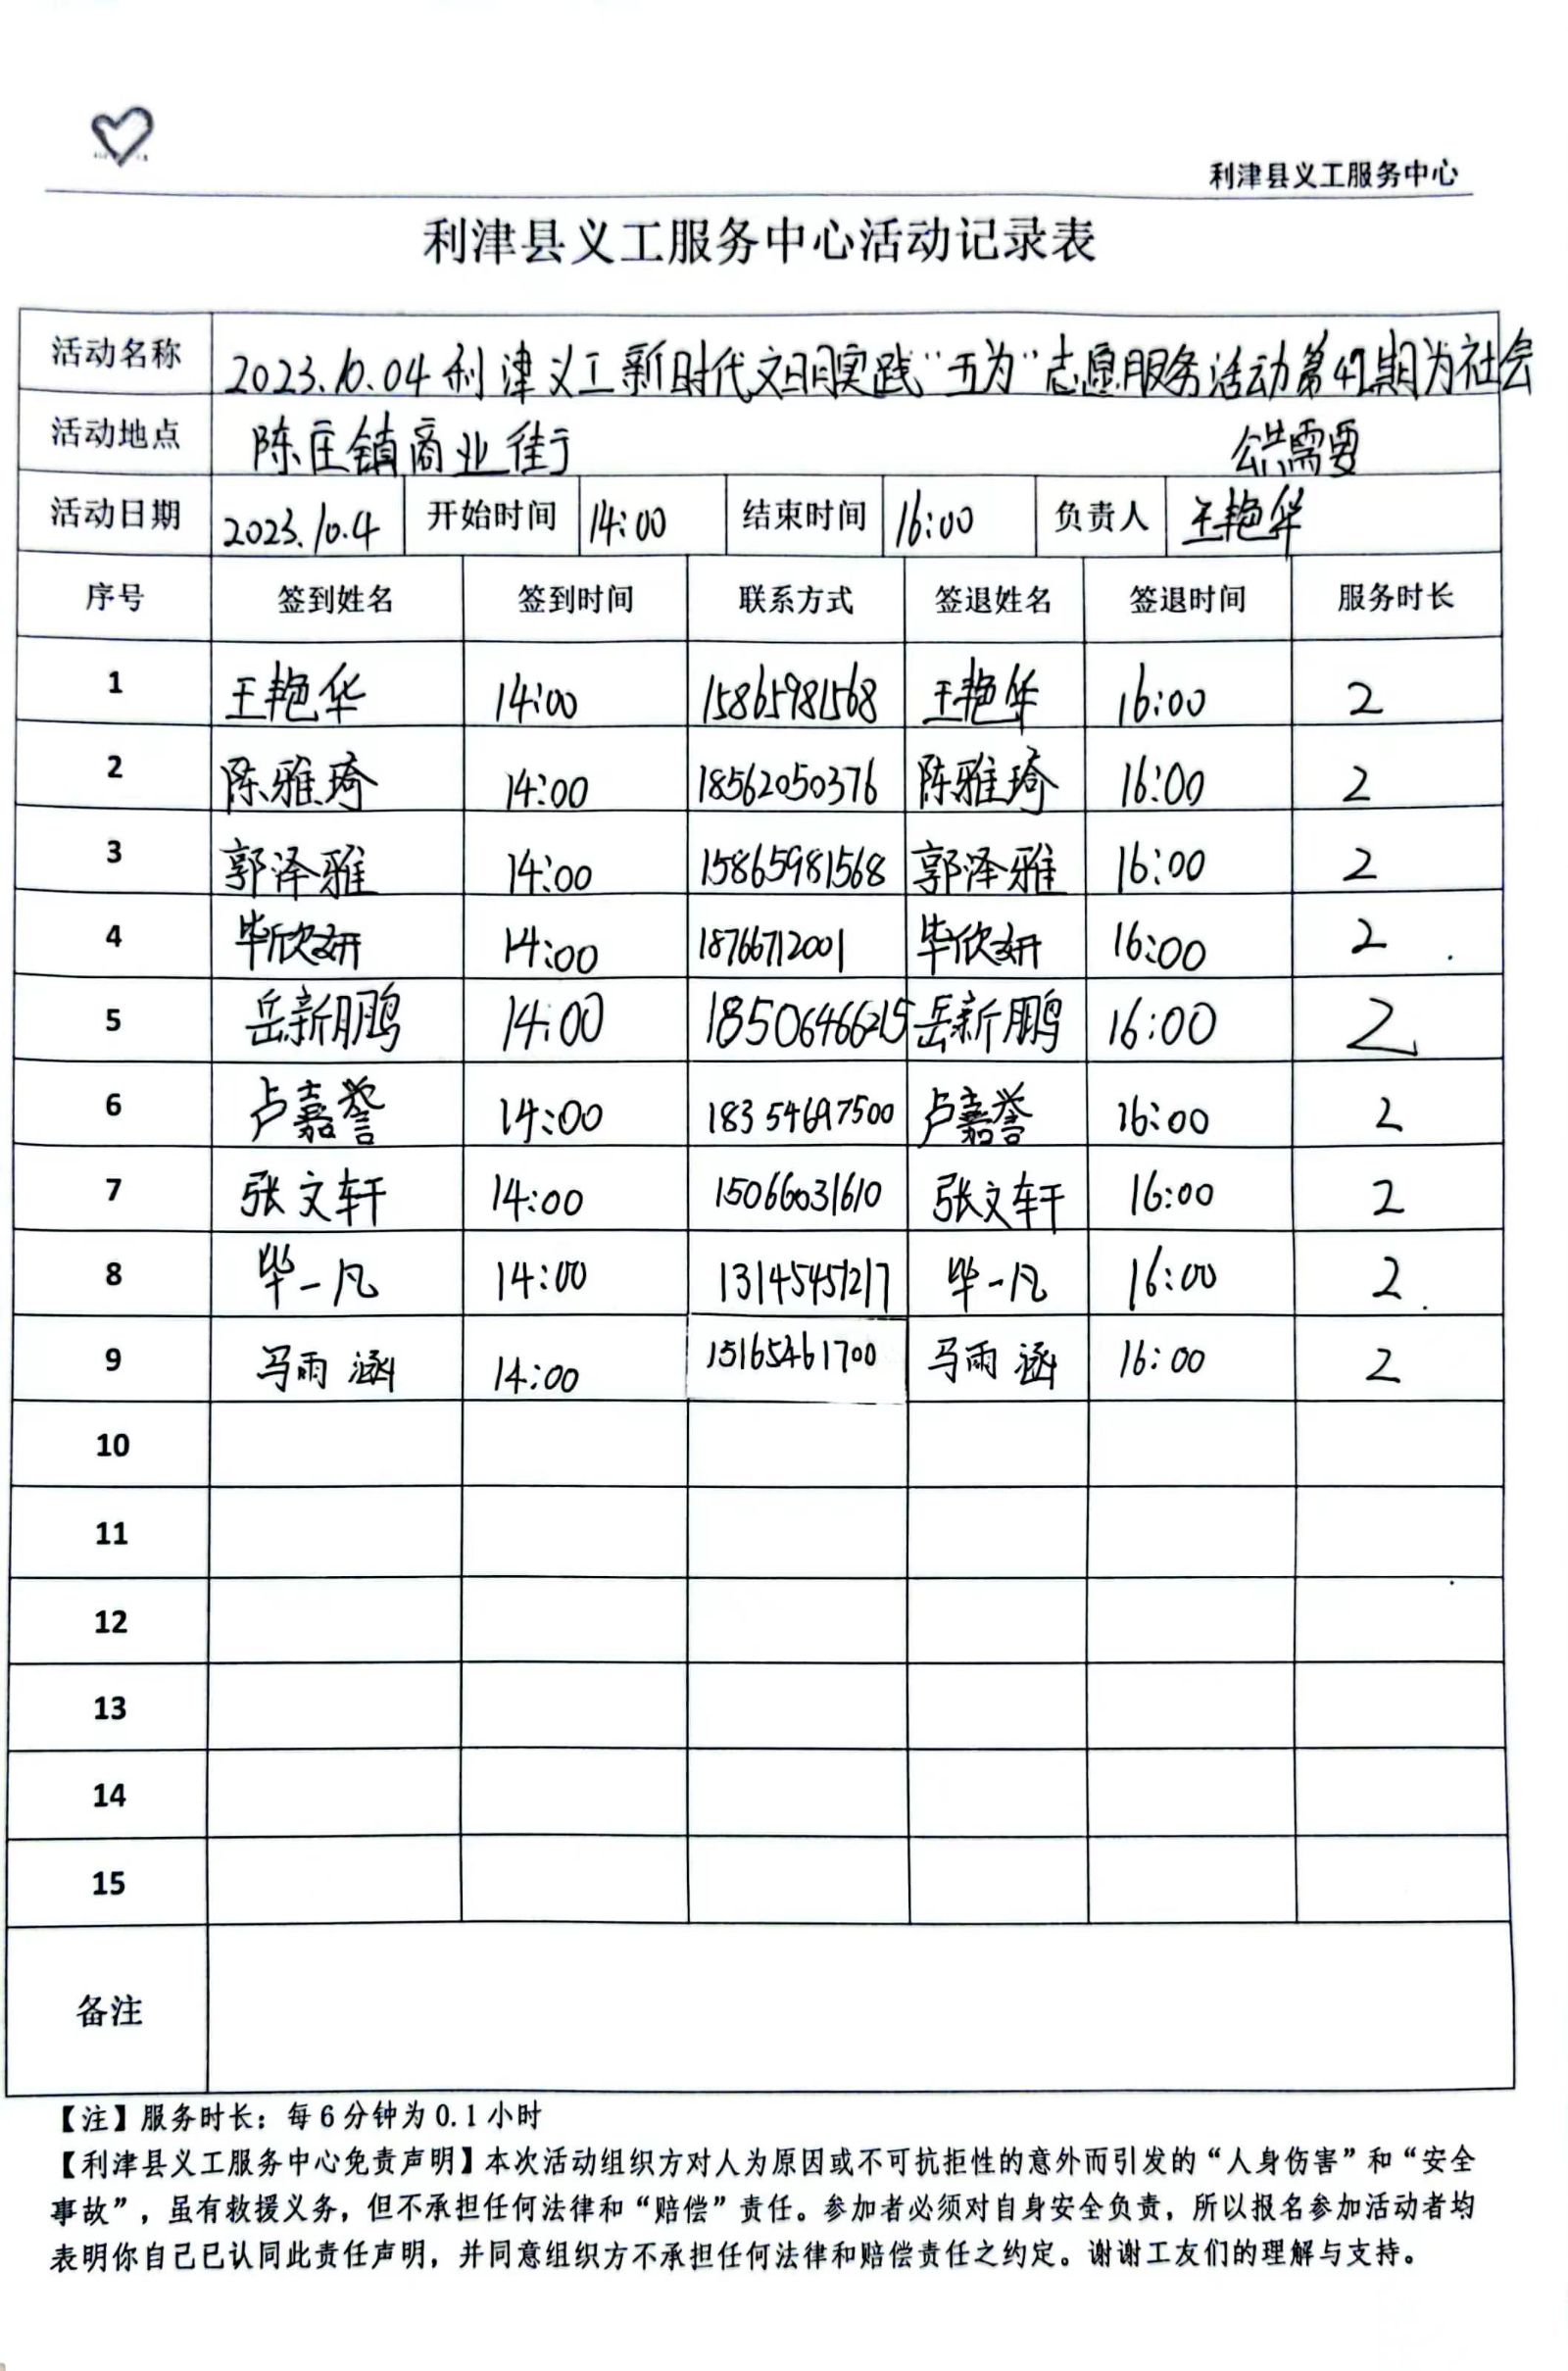 利津县义工服务中心
利津县义工服务中心活动记录表
活动名称 2023.10.04利津义工新时代文明实践“五为”志愿服务活动第42期为社会
公共需要
活动地点 陈庄镇商业街
活动日期 2023.10.4 开始时间 14:00 结束时间 16:00 负责人 王艳华
序号 签到姓名 签到时间 联系方式 签退姓名 签退时间 服务时长
1 王艳华 14:00 15865981568 王艳华 16:00 2
2 陈雅琦 14:00 18562050376 陈雅琦 16:00 2
3 郭泽雅 14:00 15865981568 郭泽雅 16:00 2
4 毕欣妍 14:00 18766712001 毕欣妍 16:00 2
5 岳新鹏 14:00 18506466215 岳新鹏 16:00 2
6 卢嘉誉 14:00 18354697500 卢嘉誉 16:00 2
7 张文轩 14:00 15066031610 张文轩 16:00 2
8 毕一凡 14:00 13145451217 毕一凡 16:00 2
9 马雨涵 14:00 15165461700 马雨涵 16:00 2
10
11
12
13
14
15
备注
【注】服务时长：每6分钟为0.1小时
【利津县义工服务中心免责声明】本次活动组织方对人为原因或不可抗拒性的意外而引发的“人身伤害”和“安全
事故”，虽有救援义务，但不承担任何法律和“赔偿”责任。参加者必须对自身安全负责，所以报名参加活动者均
表明你自己已认同此责任声明，并同意组织方不承担任何法律和赔偿责任之约定。谢谢工友们的理解与支持。